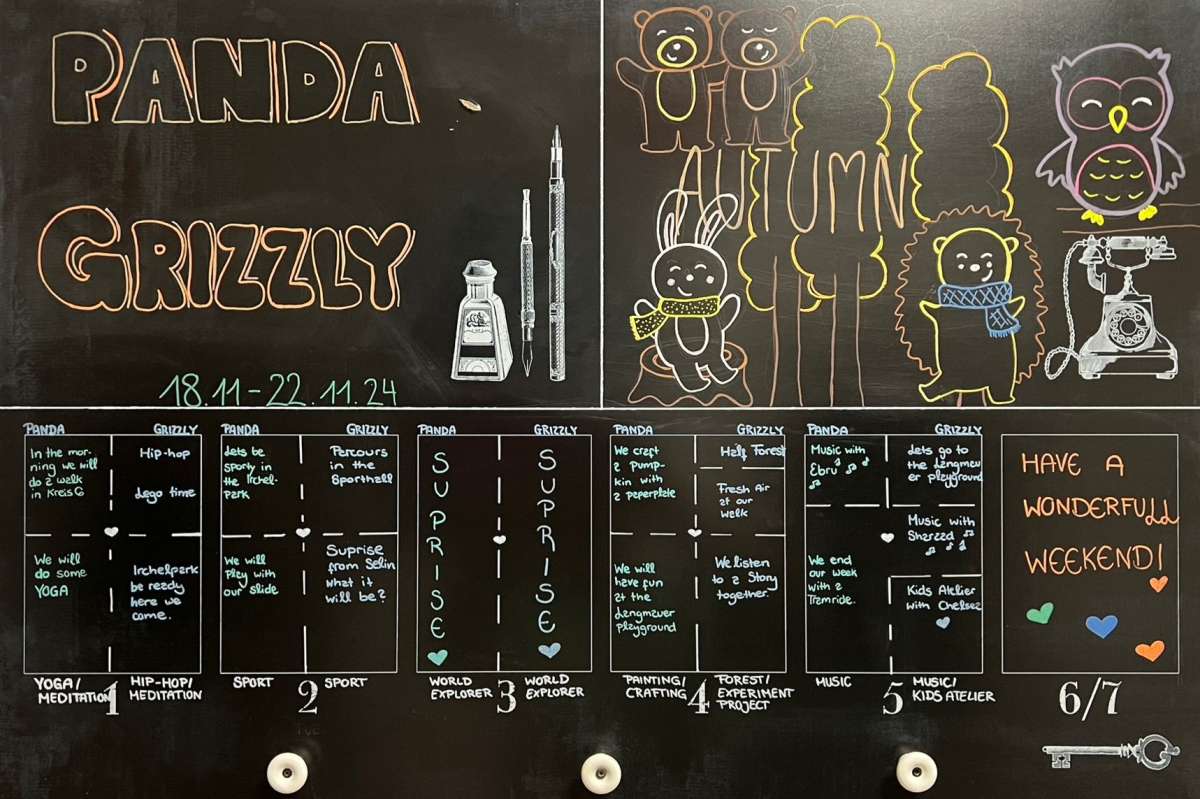 PANDA
GRIZZLY
18.11-22.11.24
AUTUMN
PANDA
GRIZZLY
In the mor-
ning we will
do a walk
in Kreis 6
Hip-hop
Lego time
We will
do some
YOGA
Irchelpark
be ready
here we
come.
YOGA/
MEDITATION
1
HIP-HOP/
MEDITATION
PANDA
GRIZZLY
Lets be
sporty in
the Irchel-
park
Percours
in the
Sporthall
We will
Play with
our slide
Suprise
from Selin
what it
will be?
SPORT
2
SPORT
PANDA
GRIZZLY
SUPRISE
SUPRISE
WORLD
EXPLORER
3
WORLD
EXPLORER
PANDA
GRIZZLY
We craft
a Pump-
kin with
a paperplate
Half Forest
Fresh Air
at our
walk
We will
have fun
at the
Lengmauer
playground
We listen
to a Story
together.
PAINTING/
CRAFTING
4
FOREST/
EXPERIMENT
PROJECT
PANDA
GRIZZLY
Music with
Ebru
Lets go to
the Lengmau
er playground
Music with
We end
our week
with a
Tramride.
Kids Atelier
with Chelsea
MUSIC
5
MUSIC/
KIDS ATELIER
HAVE A
WONDERFULL
WEEKEND!
6/7